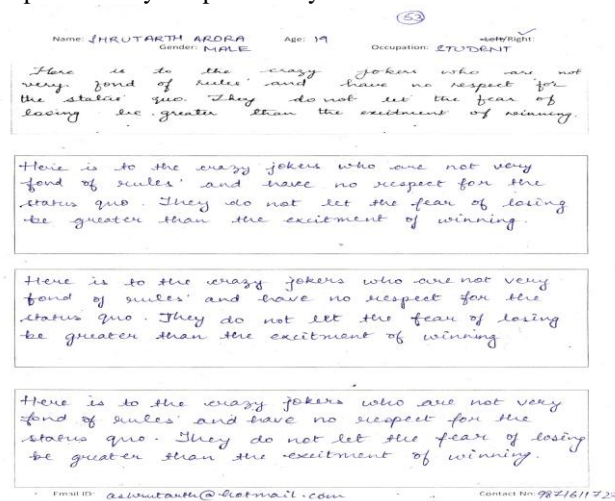 53
Name: SHRUTARTH ARORA Age: 19 Left/Right:
Gender: MALE Occupation: STUDENT
Here is to the crazy jokers who are not
very fond of rules and have no respect for
the status quo. They do not let the fear of
losing be greater than the excitment of winning.
Here is to the crazy jokers who are not very
fond of rules and have no respect for the
status quo. They do not let the fear of losing
be greater than the excitment of winning.
Here is to the crazy jokers who are not very
fond of rules and have no respect for the
status quo. They do not let the fear of losing
be greater than the excitment of winning
Here is to the crazy jokers who are not very
fond of rules and have no respect for the
status quo. They do not let the fear of losing
be greater than the excitment of winning.
Email ID: ashrutarth@hotmail.com Contact No: 9871611723